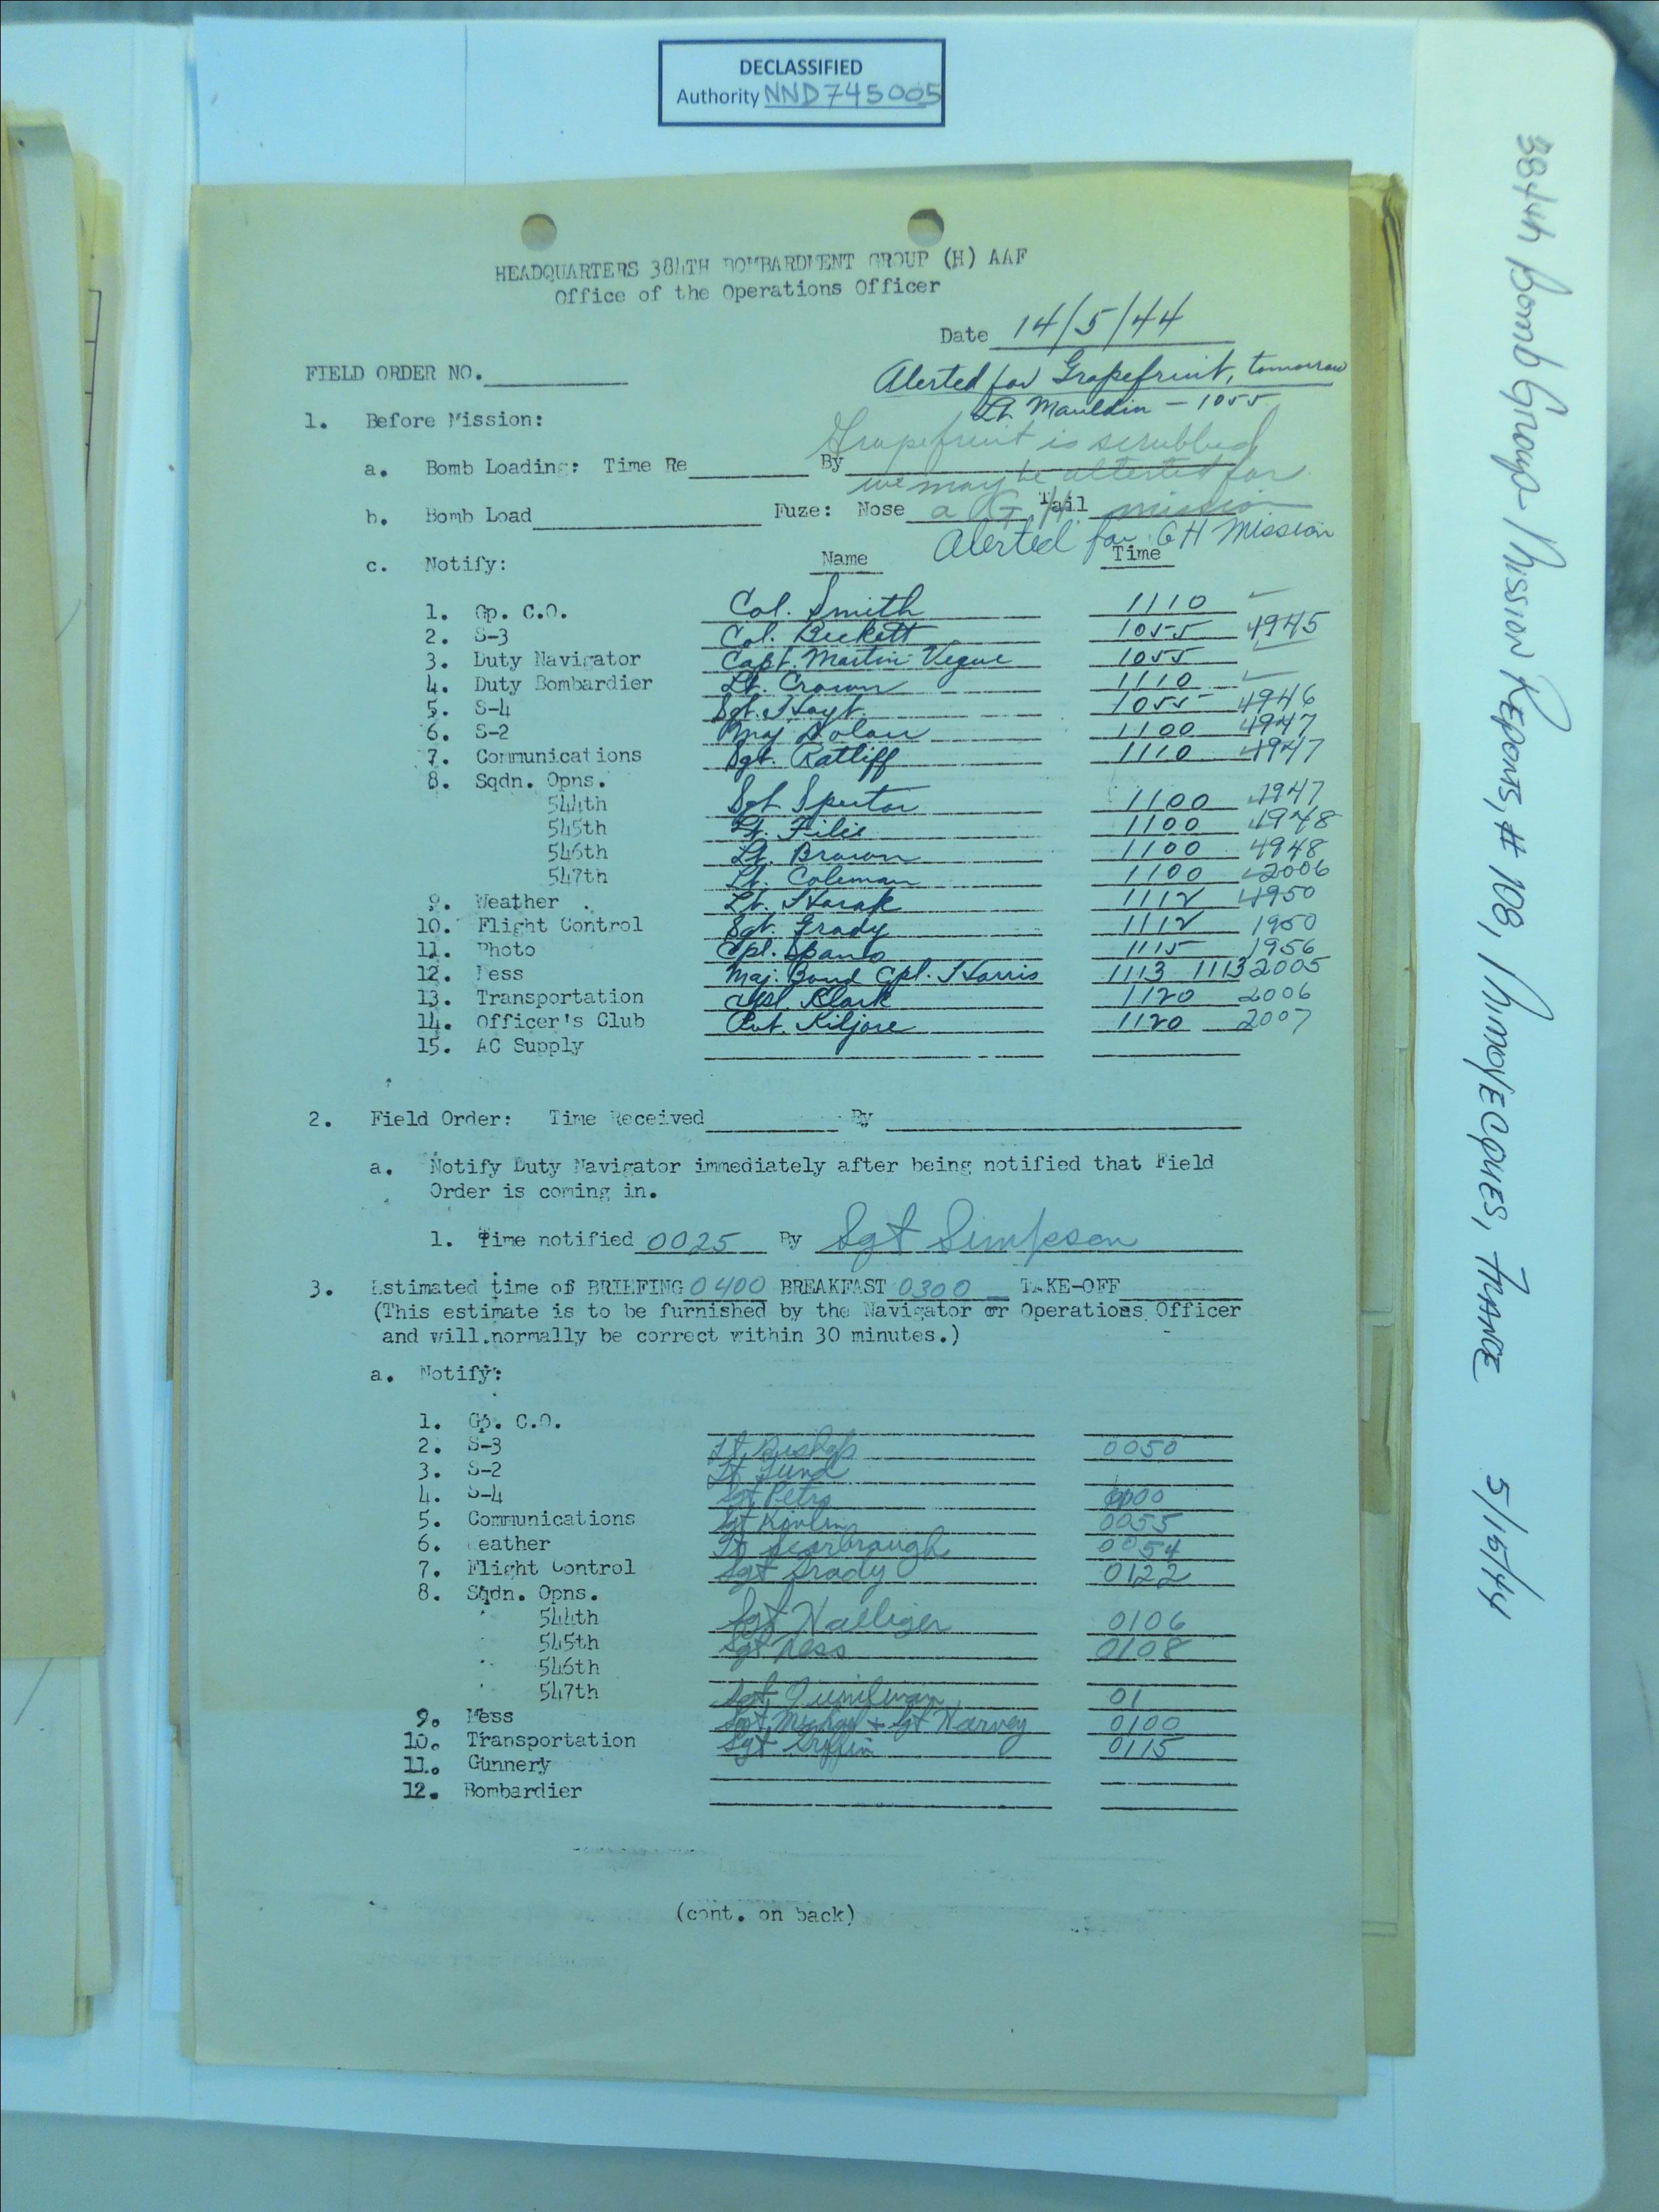 DECLASSIFIED
Authority NND745005
HEADQUARTERS 384TH BOMBARDMENT GROUP (H) AAF
Office of the Operations Officer
Date 14/5/44
FIELD ORDER NO.
Alerted for Grapefruit, tomorrow
Lt. Mauldin - 1055
1. Before Mission:
Grapefruit is scrubbed
a. Bomb Loading: Time Re By
we may be alterted for
b. Bomb Load Fuze: Nose Tail
a G H mission
Alerted for GH Mission
c. Notify: Name Time
1. Gp. C.O. Col. Smith 1110 ✓
2. S-3 Col. Beckett 1055 1945
3. Duty Navigator Capt. Martin Vegue 1055
4. Duty Bombardier Lt. Crown 1110 ✓
5. S-4 Sgt. Hoyt 1055 1946
6. S-2 Maj Dolan 1100 1947
7. Communications Sgt. Ratliff 1110 1947
8. Sqdn. Opns.
544th Sgt Spector 1100 1947
545th Lt. Filis 1100 1948
546th Lt. Brown 1100 1948
547th Lt. Coleman 1100 2006
9. Weather Lt. Horak 1112 1950
10. Flight Control Sgt. Grady 1112 1950
11. Photo Cpl. 1115 1956
12. Mess Maj. Bond Cpl. Harris 1113 1113 2005
13. Transportation Clark 1120 2006
14. Officer's Club Pvt. Kiljore 1120 2007
15. AC Supply
2. Field Order: Time Received By
a. Notify Duty Navigator immediately after being notified that Field
Order is coming in.
1. Time notified 0025 By Sgt Simpson
3. Estimated time of BRIEFING 0400 BREAKFAST 0300 TAKE-OFF
(This estimate is to be furnished by the Navigator or Operations Officer
and will normally be correct within 30 minutes.)
a. Notify:
1. Gp. C.O.
2. S-3 Lt. Bishop 0050
3. S-2 Lt Lund
4. S-4 Sgt Petro
5. Communications 0055
6. Weather Lt Scarbraugh 0054
7. Flight Control Sgt Grady 0122
8. Sqdn. Opns.
544th Sgt Halliger 0106
545th Sgt Ness 0108
546th
547th Sgt 01
9. Mess Sgt + Sgt Harvey 0100
10. Transportation Sgt Griffin 0115
11. Gunnery
12. Bombardier
(cont. on back)
384th Bomb Group - Mission Reports, # 108, Mimoyecques, France 5/15/44